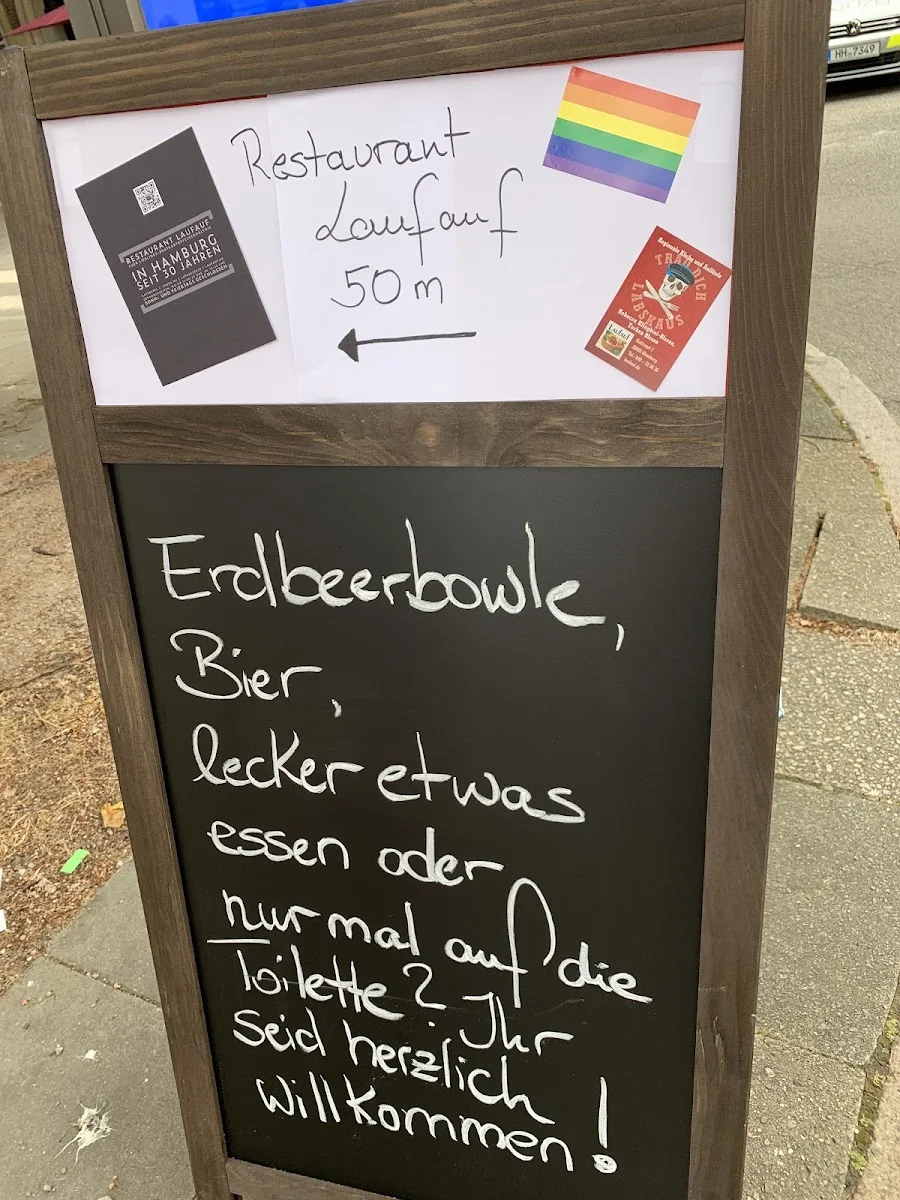 HH 7349
Restaurant
Laufauf
50 m
RESTAURANT LAUFAUF
IN HAMBURG
SEIT 30 JAHREN
SONN- UND FEIERTAGS GESCHLOSSEN
Regionale Küche und Ausläufe
TRAU DICH
LABSKAUS
Erdbeerbowle,
Bier,
lecker etwas
essen oder
nur mal auf die
Toilette? Ihr
seid herzlich
willkommen!